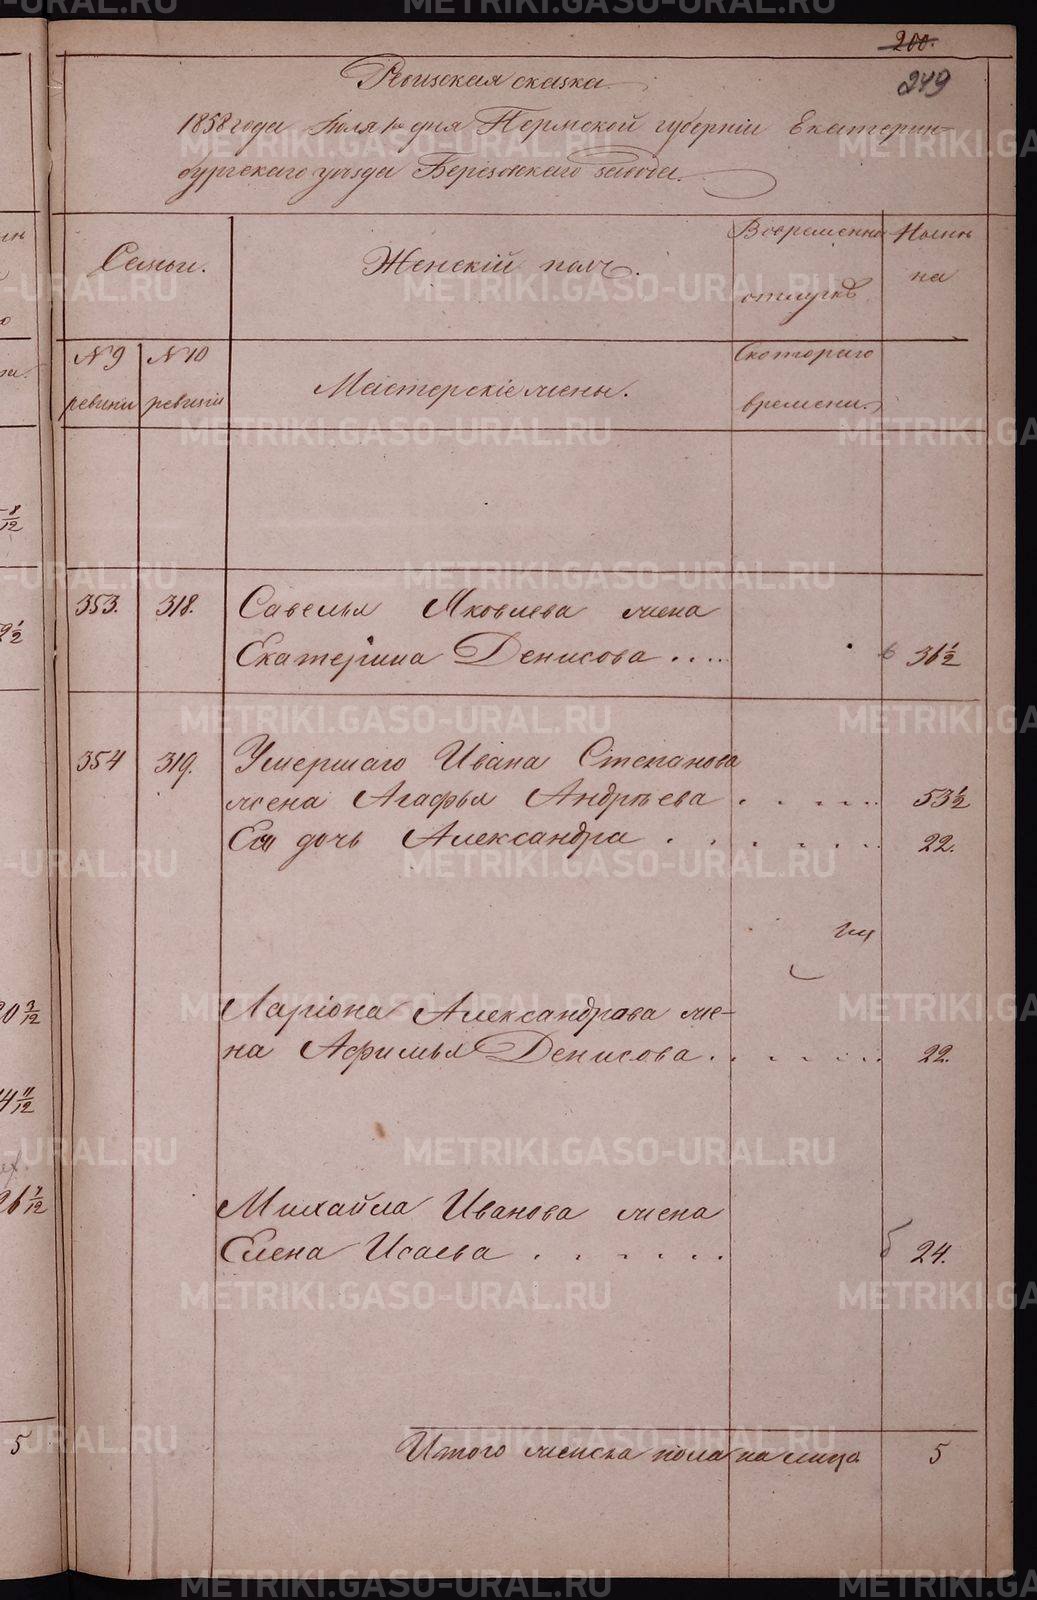 200.
249
Ревизская сказка
1858 года Июля 1го дня Пермской губерніи Екатерин-
бургскаго уѣзда Березовскаго завода.
Семьи.
Женскій полъ.
Вовременно
отлучкѣ
Ныне
на
№ 9
ревизіи
№ 10
ревизіи
Мастерскіе жены.
Скотораго
времени.
8/12
353.
318.
Савелья Яковлева жена
Екатерина Денисова . . . . .
31 1/2
354
319.
Умершаго Ивана Степанова
жена Агафья Андрѣева . . . . .
53 1/2
Ея дочь Александра . . . . . . .
22.
20 3/12
Ларіона Александрова же-
на Афимья Денисова . . . . . . .
22.
4 11/12
26 7/12
Михайла Иванова жена
Елена Исаева . . . . . .
24.
5
Итого женска пола на лицо
5
METRIKI.GASO-URAL.RU